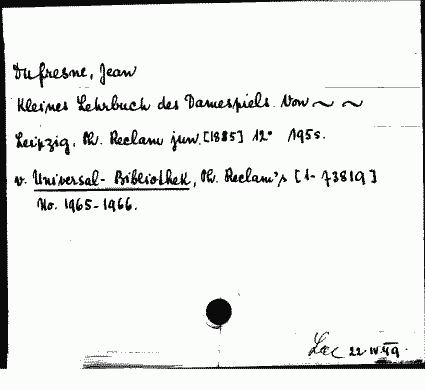 Dufresne, Jean
Kleines Lehrbuch des Damespiels. Von ~ ~
Leipzig, Ph. Reclam jun. [1885] 12° 195 s.
v. Universal-Bibliothek, Ph. Reclam's [1-7381q]
No. 1965-1966.
22 IV 49.